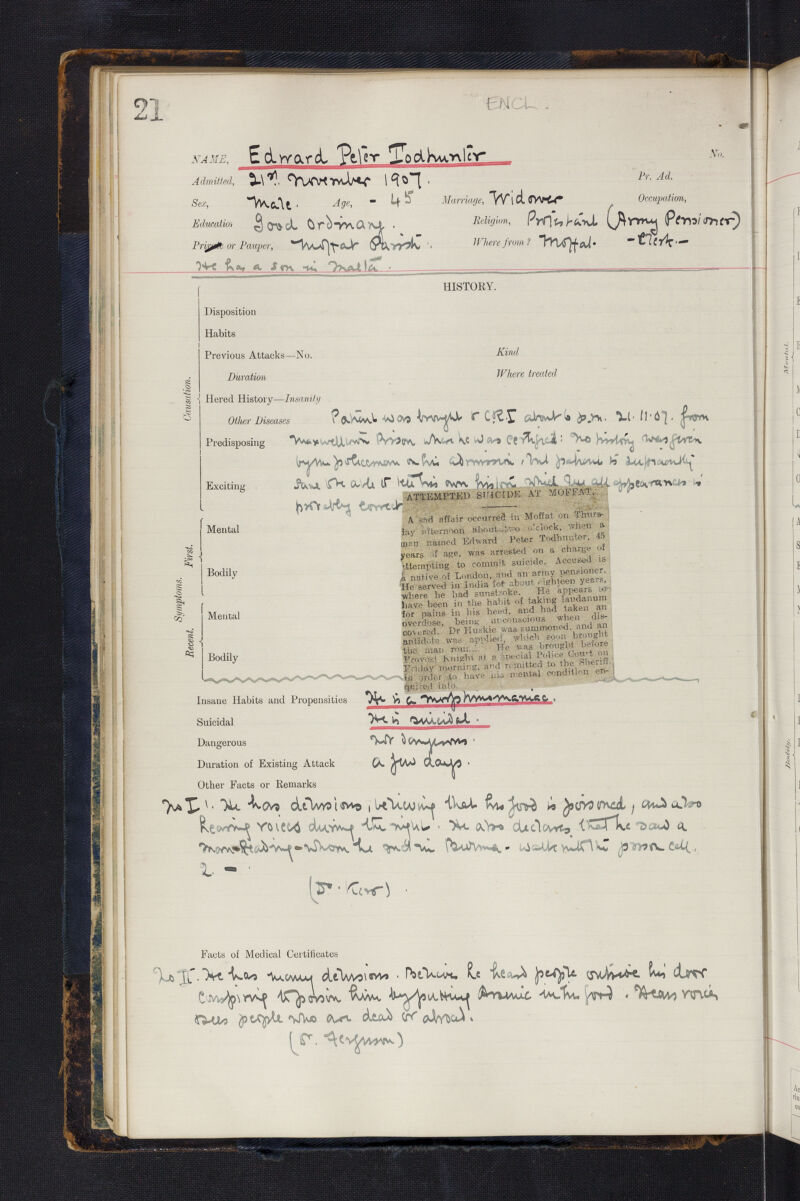 21
ENCL.
NAME, Edward Peter Todhunter No.
Admitted, 21st November 1907. Pr. Ad.
Sex, Male. Age, - 45 Marriage, Widower Occupation,
Education Good Ordinary. Religion, Protestant (Army Pensioner)
Private or Pauper, Moffat Parish. Where from? Moffat. - Clerk. -
He has a son in Malta.
HISTORY.
Disposition
Habits
Previous Attacks—No. Kind
Duration Where treated
Causation.
Hered History—Insanity
Other Diseases Patient was brought to C.R.I about 6 p.m. 21.11.07. from
Predisposing Maxwelltown Prison when he was certified: no history was given
by the policeman on his admission, but patient is sufficiently
Exciting sane to be able to tell his own history which by all appearances is
probably correct
ATTEMPTED SUICIDE AT MOFFAT.
A sad affair occurred in Moffat on Thurs-
day afternoon about two o'clock, when a
man named Edward Peter Todhunter, 45
years of age, was arrested on a charge of
attempting to commit suicide. Accused is
a native of London, and an army pensioner.
He served in India for about eighteen years,
where he had sunstroke. He appears to
have been in the habit of taking laudanum
for pains in his heed, and had taken an
overdose, being unconscious when dis-
covered. Dr Huskie was summoned, and an
antidote was applied, which soon brought
the man round. He was brought before
Provost Knight at a special Police Court on
Friday morning, and remitted to the Sheriff
in order to have his mental condition en-
quired into.
Symptoms.
First.
Mental
Bodily
Recent.
Mental
Bodily
Insane Habits and Propensities He is a morphinomaniac.
Suicidal He is suicidal.
Dangerous Not dangerous.
Duration of Existing Attack a few days.
Other Facts or Remarks
No I 1. He has delusions, believing that his food is poisoned, and also
hearing voices during the night. He also declares that he saw a
man in Burma - walk into the prison cell.
2. -
(Dr. Kerr)
Facts of Medical Certificates
No II. He has many delusions. Believes he heard people outside his door
conspiring to poison him by putting Arsenic in the food. Hears voices
sees people who are dead or abroad.
(Dr. Ferguson)
Mental.
Bodily.